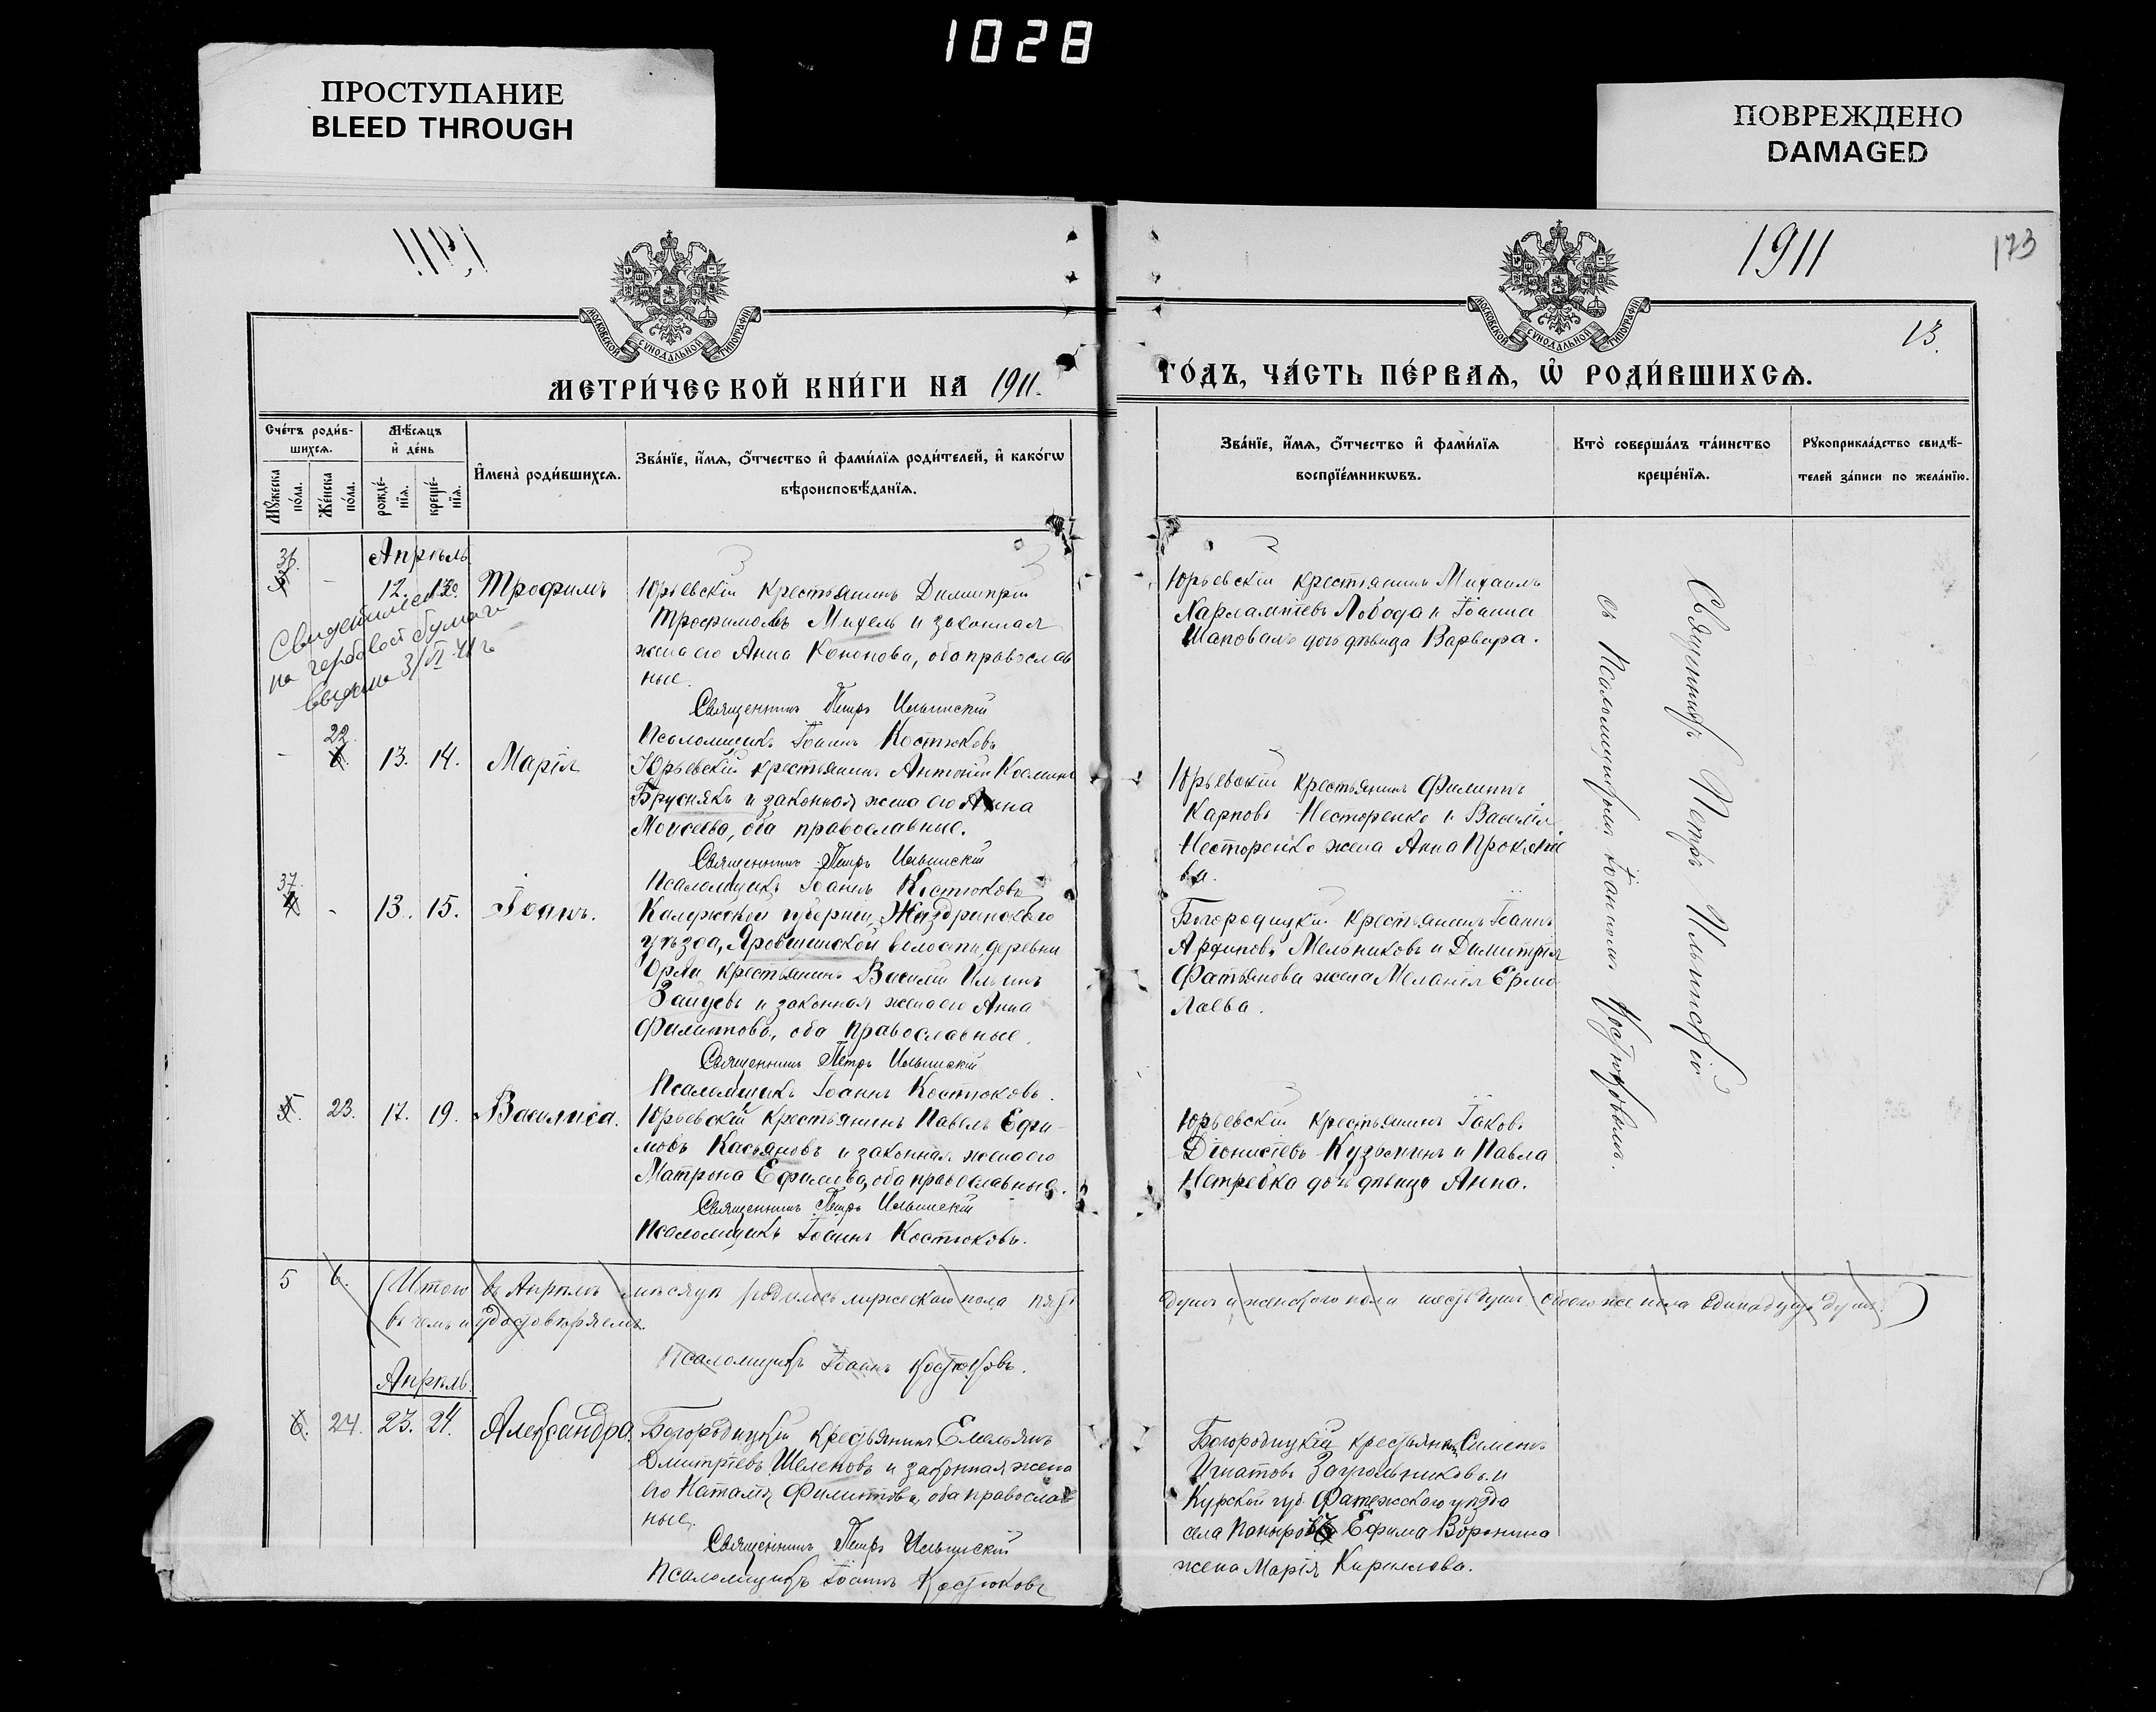 1028
ПРОСТУПАНИЕ
BLEED THROUGH
ПОВРЕЖДЕНО
DAMAGED
1911
173
13.
МОСКОВСКОЙ СѴНОДАЛЬНОЙ ТИПОГРАФІИ
МОСКОВСКОЙ СѴНОДАЛЬНОЙ ТИПОГРАФІИ
МЕТРИ́ЧЕСКОЙ КНИ́ГИ НА 1911.
ГО́ДЪ, ЧА́СТЬ ПЕ́РВАѦ, Ѡ҆ РОДИ́ВШИХСѦ.
Сче́тъ роди́в-
шихсѧ.
Мꙋ́жеска
по́ла.
Же́нска
по́ла.
Мѣ́сѧцъ
и҆ де́нь
рожде́-
нїѧ.
креще́-
нїѧ.
И҆мена̀ роди́вшихсѧ.
Зва́нїе, и҆́мѧ, ѻ҆́тчество и҆ фами́лїѧ роди́телей, и҆ како́гѡ
вѣроисповѣ́данїѧ.
Зва́нїе, и҆́мѧ, ѻ҆́тчество и҆ фами́лїѧ
воспрїе́мникѡвъ.
Кто̀ соверша́лъ та́инство
креще́нїѧ.
Рꙋкоприкла́дство свидѣ́-
телей за́писи по жела́нїю.
Апрѣль
36. - 12. 13. Трофимъ
Юрьевскій крестьянинъ Димитрій
Трофимовъ Михель и законная
жена его Анна Кононова, оба православ
ные.
Священникъ Петръ Ильинскій
Псаломщикъ Іоаннъ Костюковъ
Юрьевскій крестьянинъ Михаилъ
Харлампіевъ Лобода и Іоанна
Шаповалъ дочь дѣвица Варвара.
Свидетельство
на гербовой бумаге
выдано 3/VI 41 г
- 22. 13. 14. Марія
Юрьевскій крестьянинъ Антоній Косминъ
Бруснякъ и законная жена его Анна
Моисеева, оба православные.
Священникъ Петръ Ильинскій
Псаломщикъ Іоаннъ Костюковъ
Юрьевскій крестьянинъ Филиппъ
Карповъ Несторенко и Василія
Несторенко жена Анна Прокопіе
ва.
37. - 13. 15. Іоаннъ.
Калужской губерніи, Жиздринскаго
уѣзда, волости, деревни
Орли крестьянинъ Василій Ильинъ
Зайцевъ и законная жена его Анна
Филиппова, оба православные.
Священникъ Петръ Ильинскій
Псаломщикъ Іоаннъ Костюковъ.
Богородицкій крестьянинъ Іоаннъ
Архиповъ Мельниковъ и Димитрія
Фатьянова жена Меланія Ермо
лаева.
23. 17. 19. Василиса.
Юрьевскій крестьянинъ Павелъ Ефи-
мовъ Касьяновъ и законная жена его
Матрона Ефимова, оба православные.
Священникъ Петръ Ильинскій
Псаломщикъ Іоаннъ Костюковъ.
Юрьевскій крестьянинъ Іаковъ
Діонисіевъ Кузьминъ и Павла
Нетребка дочь дѣвица Анна.
Священникъ Петръ Ильинскій
съ Псаломщикомъ Іоанномъ Костюковымъ.
5 6. (Итого въ Апрѣлѣ мѣсяцѣ родилось мужескаго пола пять
душъ и женскаго пола шесть душъ обоего же пола одинадцать душъ.)
въ чемъ и удостовѣряемъ.
Псаломщикъ Іоаннъ Костюковъ.
Апрѣль.
6. 24. 23. 24. Александра.
Богородицкій крестьянинъ Емельянъ
Дмитріевъ Шелеховъ и законная жена
его Наталія Филиппова, оба православ
ные.
Священникъ Петръ Ильинскій
Псаломщикъ Іоаннъ Костюковъ
Богородицкій крестьянинъ Симеонъ
Игнатовъ и
Курской губ. Фатежскаго уѣзда
села Ефима Воронина
жена Марія Кириллова.